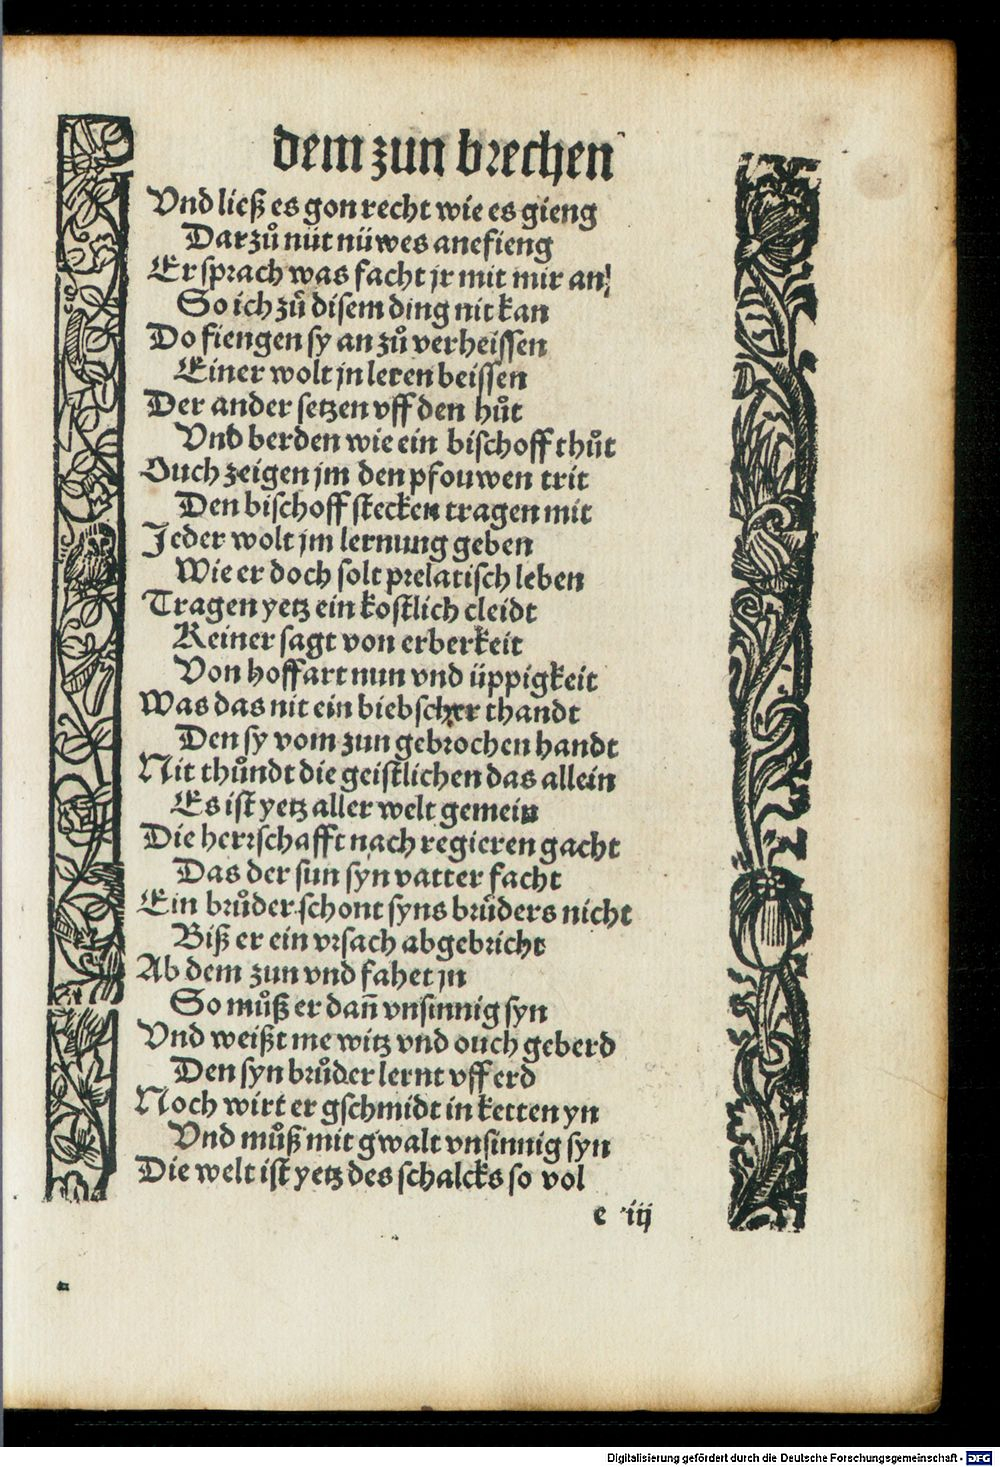 dem zun brechen
Vnd ließ es gon recht wie es gieng
Darzů nüt nüwes anefieng
Er sprach was facht jr mit mir an!
So ich zů disem ding nit kan
Do fiengen sy an zů verheissen
Einer wolt jn leren beissen
Der ander setzen vff den hůt
Vnd berden wie ein bischoff thůt
Ouch zeigen jm den pfouwen trit
Den bischoff stecken tragen mit
Jeder wolt jm lernung geben
Wie er doch solt prelatisch leben
Tragen yetz ein kostlich cleidt
Keiner sagt von erberkeit
Von hoffart nun vnd üppigkeit
Was das nit ein biebscher thandt
Den sy vom zun gebrochen handt
Nit thůndt die geistlichen das allein
Es ist yetz aller welt gemein
Die herrschafft nach regieren gacht
Das der sun syn vatter facht
Ein brůder schont syns brůders nicht
Biß er ein vrsach abgebricht
Ab dem zun vnd fahet jn
So můß er dan̄ vnsinnig syn
Vnd weißt me witz vnd ouch geberd
Den syn brůder lernt vff erd
Noch wirt er gschmidt in ketten yn
Vnd můß mit gwalt vnsinnig syn
Die welt ist yetz des schalcks so vol
e iij
Digitalisierung gefördert durch die Deutsche Forschungsgemeinschaft - DFG